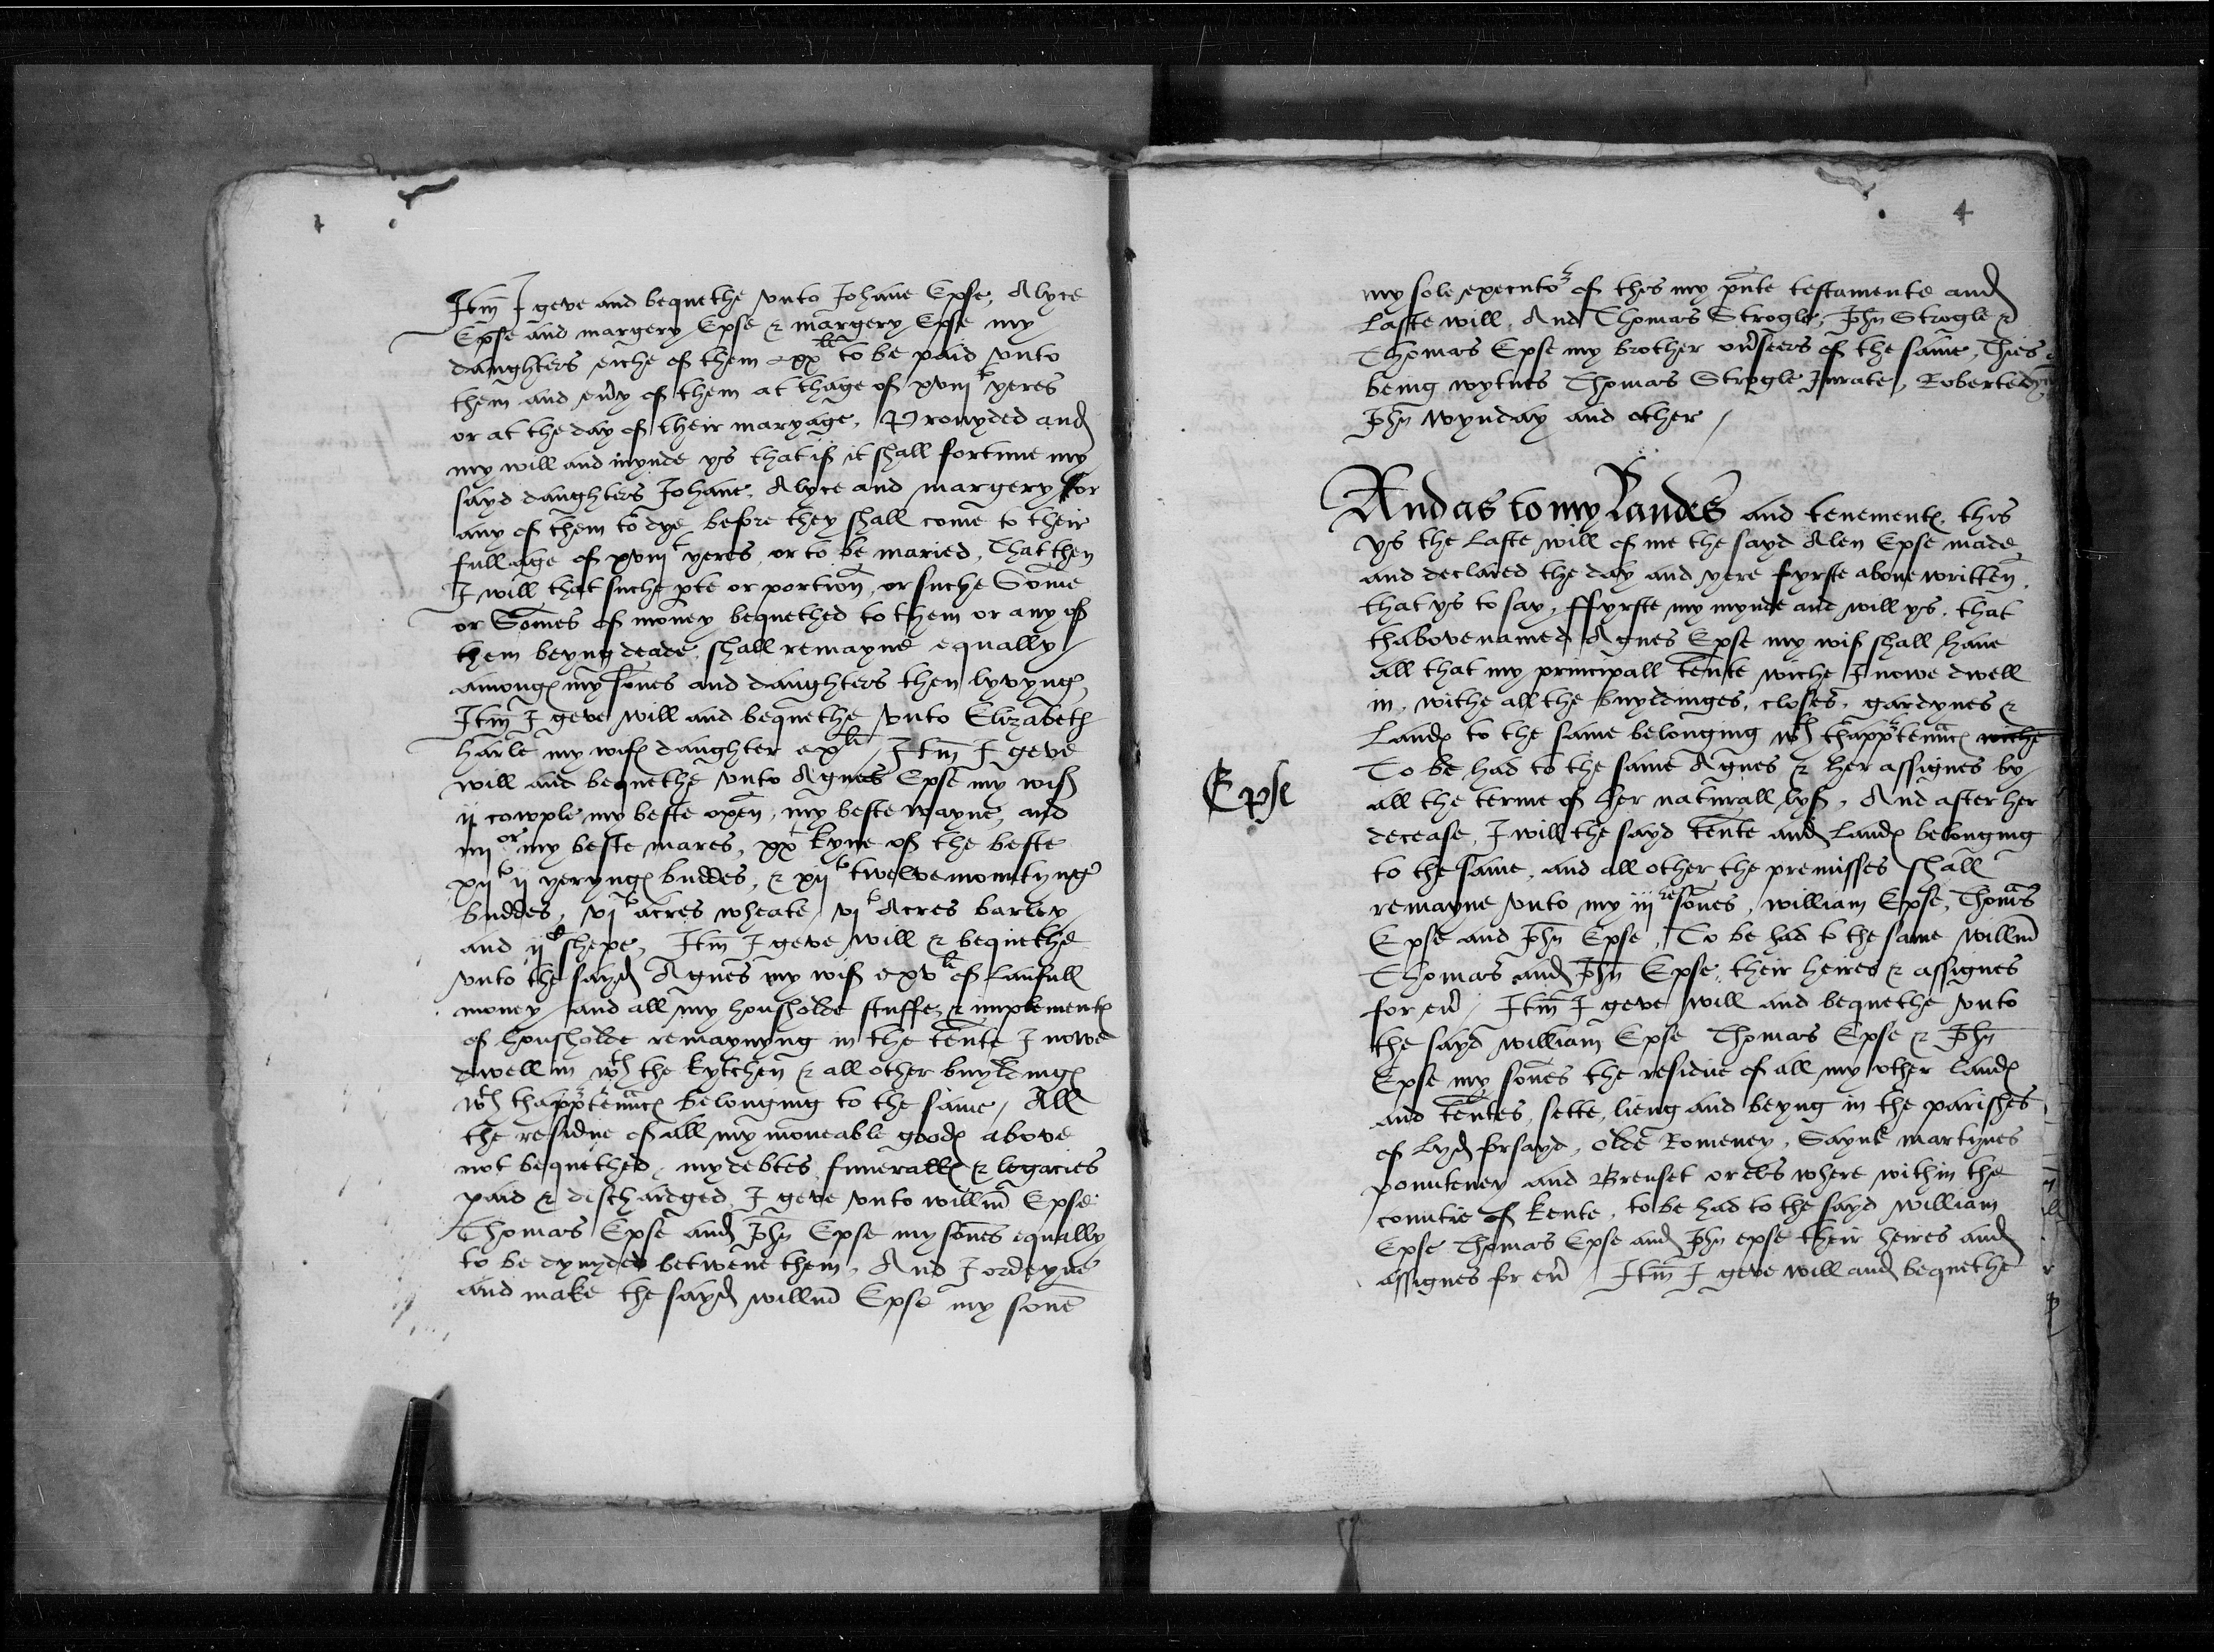 Itm I geve and bequethe vnto Johane Epse, Alyce
Epse and margery Epse & margery Epse my
daughters eiche of them xx li to be paid vnto
them and eu'y of them at thage of xviij yeres
or at the day of their maryage. Provyded and
my will and mynde ys that if it shall fortune my
sayd daughters Johane, Alyce and margery for
any of them to dye before they shall come to their
full age of xviij yeres, or to be maried, That then
I will that suche pte or portion, or suche Some
or Somes of money bequethed to them or any of
them beyng deade, shall remayne equally
amonge my sones and daughters then lyvynge
Itm I geve will and bequethe vnto Elizabeth
harle my wifes daughter xli Itm I geve
will and bequethe vnto Agnes Epse my wif
ij cowple my beste oxen, my beste wayne, and
iiij or my beste mares, xx kyne of the beste
xij ij yerynge buddes, & xij twelvemontyng
buddes, vj acres wheate vj Acres barley
and ij shepe, Itm I geve will & bequethe
vnto the sayd Agnes my wif xv li of laufull
money and all my housholde stuffe & implementes
of housholde remaynyng in the tente I nowe
dwell in wth the kytchen & all other buyldinges
wth thapptenncs belonging to the same, All
the residue of all my moueable goodes above
not bequethed, my debtes funeralles & legacies
paid & dischardged I geve vnto willm Epse
Thomas Epse and Jhn Epse my sones equally
to be dyvyded betwene them, And I ordeyne
and make the sayd willm Epse my sone
4
my sole executor of this my pnte testamente and
laste will, And Thomas Strogle, Jhn Strogle &
Thomas Epse my brother ou'seers of the same, Thies
being wytnes Thomas Strogle Jurate, Roberte
Jhn wynday and other /
And as to my landes and tenementes this
ys the laste will of me the sayd Alen Epse made
and declared the day and yere fyrste above written,
that ys to say, ffyrste my mynde and will ys, that
thabovenamed Agnes Epse my wif shall have
all that my principall tente wiche I nowe dwell
in, withe all the buyldinges, closes, gardynes &
landes to the same belonging wth thapptenncs wiche
Epse
To be had to the same Agnes & her assignes by
all the terme of her naturall lyf, And after her
decease, I will the sayd tente and landes belonging
to the same, and all other the premisses shall
remayne vnto my iij sones, william Epse, Thomas
Epse and Jhn Epse, To be had to the same willm
Thomas and Jhn Epse their heires & assignes
for eu' / Itm I geve will and bequethe vnto
the sayd william Epse Thomas Epse & Jhn
Epse my sones the residue of all my other landes
and tentes, sette, lieng and beyng in the parishes
of lyd forsayd, Olde Romeney, Saynt martynes
pountney and Brenset or elswhere within the
countie of kente, to be had to the sayd william
Epse Thomas Epse and Jhn epse their heires and
assignes for eu' Itm I geve will and bequethe